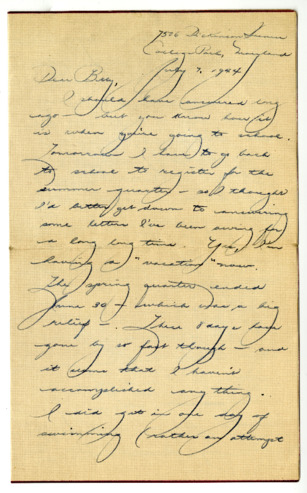 7506 Dickinson Avenue
College Park, Maryland
July 7, 1944
Dear Bee,
I should have answered long
ago - but you know how it
is when you're going to school.
Tomorrow I have to go back
to school to register for the
summer quarter - so I thought
I'd better get down to answering
some letters I've been owing for
a long long time. Yes, I'm
having a "vacation" now.
The spring quarter ended
June 30 - which was a big
relief -. These 8 days have
gone by so fast though - and
it seems that I haven't
accomplished anything.
I did get in one day of
swimming (rather an attempt